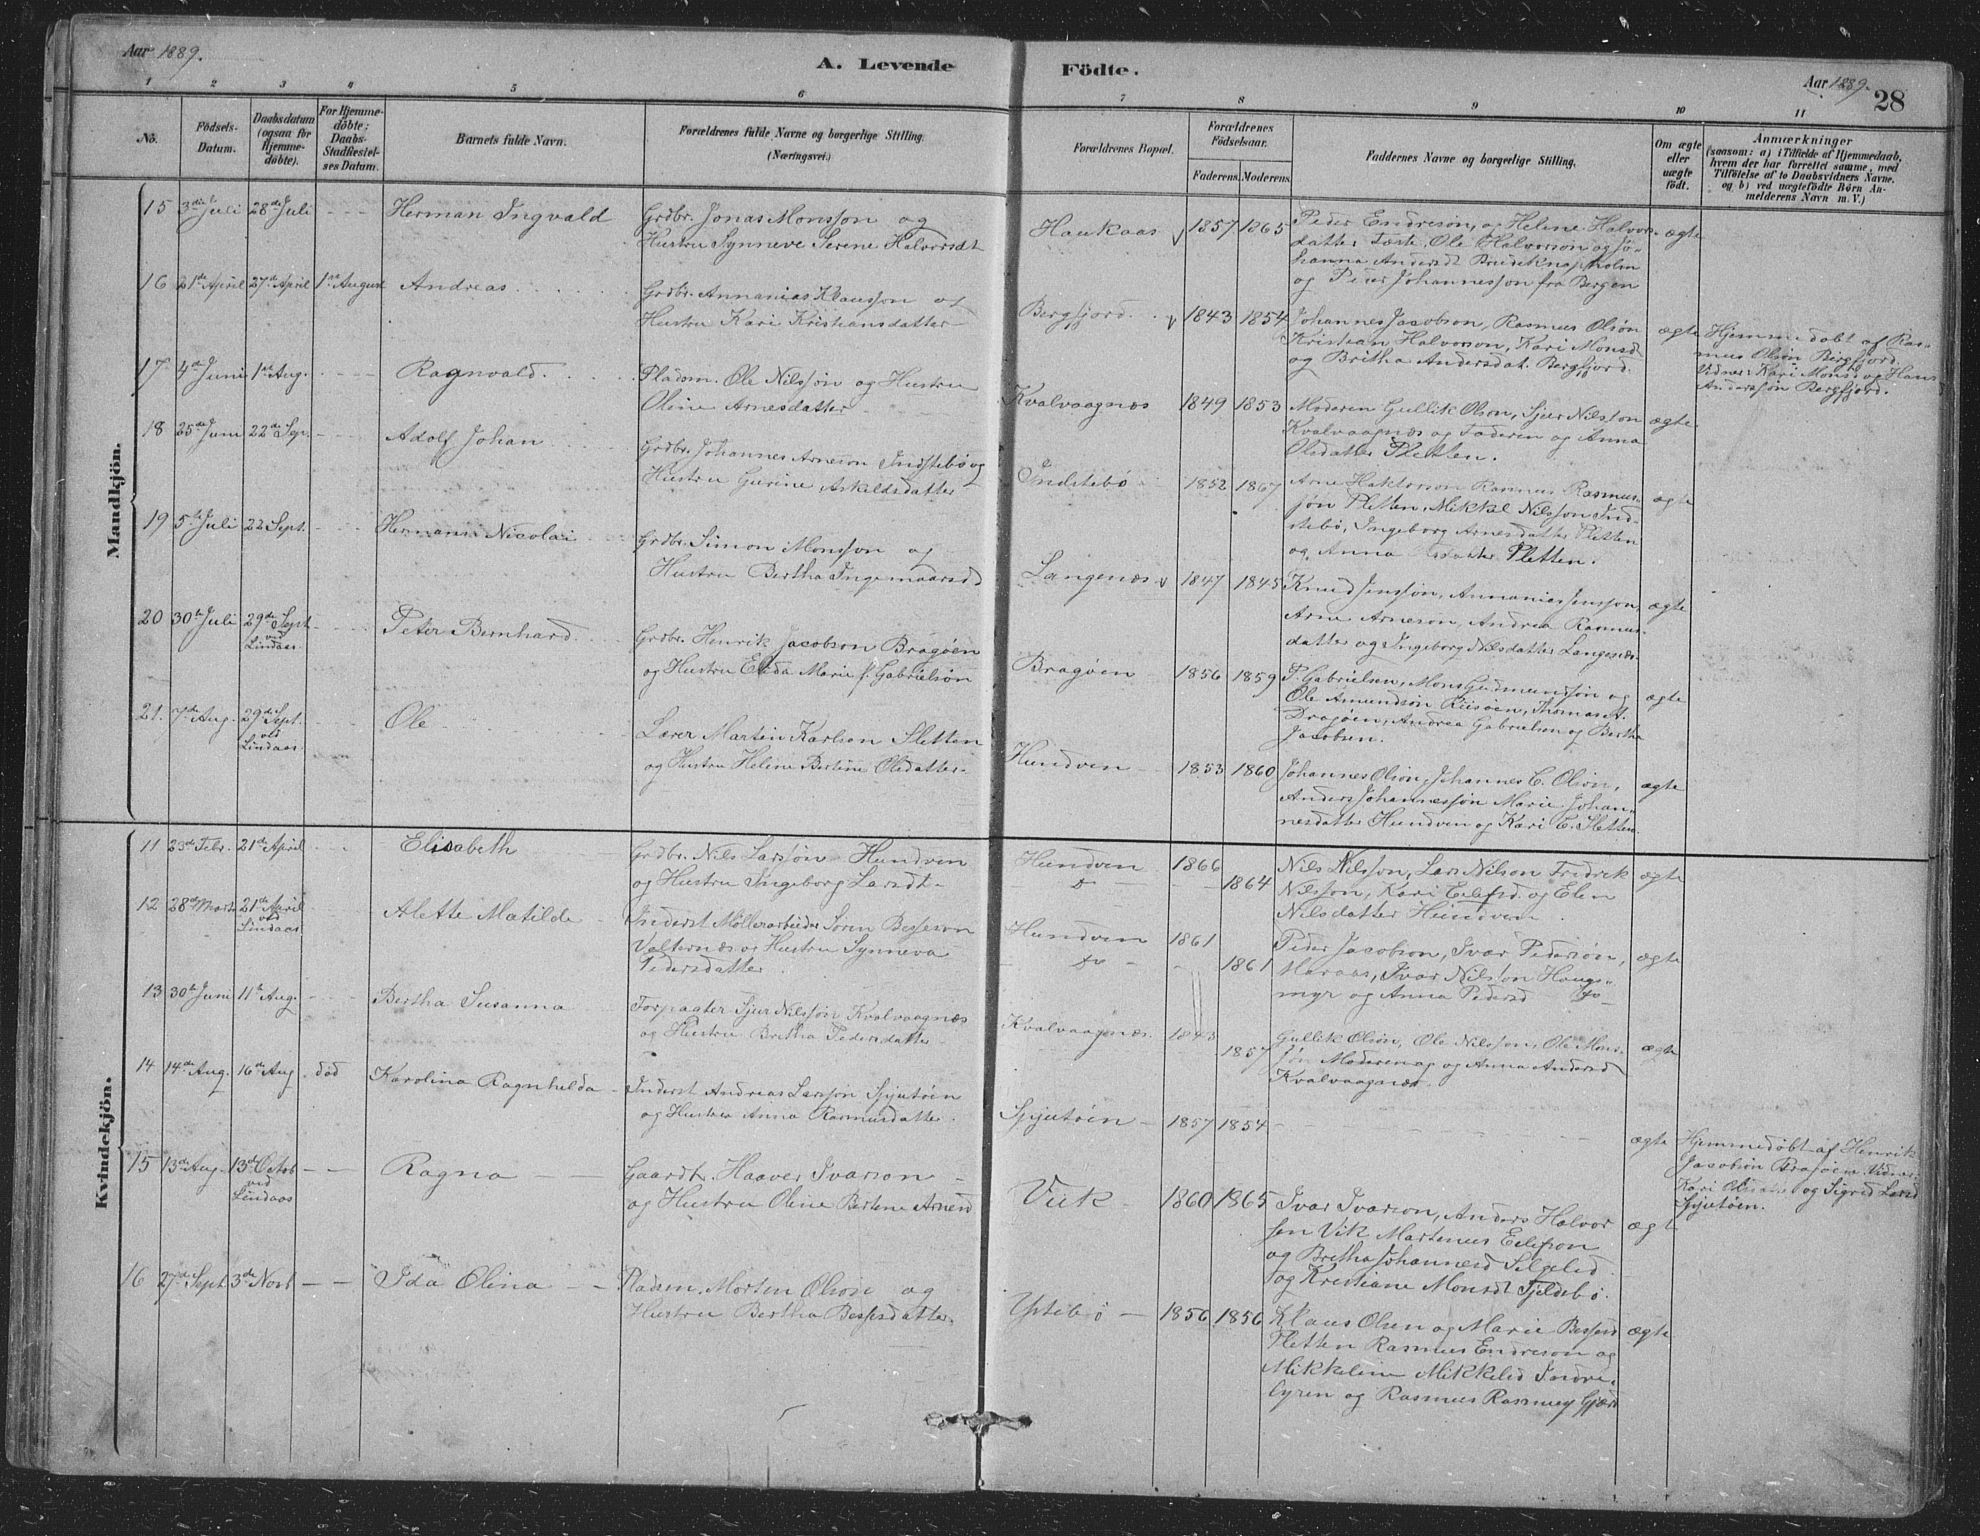 Aar 1889.
A. Levende Födte.
Aar 1889.
28
1 2 3 4 5 6 7 8 9 10 11
No.
Födsels-Datum.
Daabsdatum (ogsaa for Hjemme-döbte).
For Hjemme-döbte: Daabs-Stadfæstel-ses Datum.
Barnets fulde Navn.
Forældrenes fulde Navne og borgerlige Stilling. (Næringsvei.)
Forældrenes Bopæl.
Forældrenes Födselsaar.
Faderens. Moderens.
Faddernes Navne og borgerlige Stilling.
Om ægte eller uægte födt.
Anmærkninger
(saasom: a) i Tilfælde af Hjemmedaab, hvem der har forrettet samme, med Tilföielse af to Daabsvidners Navne. og b) ved uægtefödte Börn An-melderens Navn m. V.)
Mandkjön.
15 3die Juli 28de Juli - - - Herman Ingvald
Grdbr. Jonas Monsson og
Hustru Synneve Serene Halvorsdt
Haukaas 1857 1865
Peder Endreson, og Helene Halvors-
datter Toste, Ole Halvorson og Jo-
hanna Andersdt
og Peder Johannesson fra Bergen
ægte
16 21de April 27de April 1ste August Andreas
Grdbr. Annanias Klausson og
Hustru Kari Kristiansdatter
Bergfjord 1843 1854
Johannes Jacobson, Rasmus Olson
Kristian Halvorson, Kari Monsd
og Britha Andersdat. Bergfjord.
ægte
Hjemmedøbt af Ras-
mus Olson Bergfjord.
Vidner: Kari Monsd og Hans
Andersson Bergfjord.
17 4de Juni 1ste Aug. Ragnvald
Pladsm. Ole Nilsson og Hustru
Oline Arnesdatter
Kvalvaagnæs 1849 1853
Moderen Gullik Olson, Sjur Nilsson
Kvalvaagnæs og Faderen og Anna
Olsdatter Sletten.
ægte
18 25de Juni 22de Sep. Adolf Johan
Grdbr. Johannes Arneson Indstebø og
Hustru Gurine Askildsdatter
Indstebø 1852 1867
Arne Haktorson Rasmus Rasmus-
søn Sletten, Mikkel Nilsson Ind-
stebø, Ingeborg Arnesdatter Sletten
og Anna Sletten.
ægte
19 5te Juli 22 Sept. Herman Nicolai
Grdbr. Simon Monsson og
Hustru Bertha Ingemaarsd
Langenæs 1847 1845
Knud Jensson, Annanias Jensson,
Arne Arneson, Andrea Rasmus-
datter og Ingeborg Nilsdatter Langenæs
ægte
20 30te Juli 29de Sept. ved Lindaas Peter Bernhard
Grdbr. Henrik Jacobson Bragøen
og Hustru Elida Marie f. Gabrielson
Bragøen 1856 1859
P. Gabrielsen, Mons Gudmundson og
Ole Amundson Riisøen, Thomas A.
Dragøen, Andrea Gabrielsen og Bertha
Jacobsen.
ægte
21. 7de Aug. 29de Sept. ved Lindaas Ole
Lærer Martin Karlson Sletten
og Hustru Helene Bertine Olsdatter
Hundven 1853 1860
Johannes Olson, Johannes C. Olson,
Anders Johannesson Marie Johan-
nesdatter Hundven og Kari C. Sletten.
ægte
Kvindekjön.
11 23de Febr. 21de April Elisabeth
Grdbr. Nils Larsson Hundven
og Hustru Ingeborg Larsdt
Hundven 1866
do 1864
Nils Nilsson, Lars Nilson Fredrik
Nilsson, Kari Eilefsd. og Elen
Nilsdatter Hundven
ægte
12 28de Marts 21de April ved Lindaas Alette Matilde
Inderst Møllerarbeider Søren Besseson
Valternæs og Hustru Synneva
Pedersdatter
Hundven 1861
do 1861
Peder Jacobson, Ivar Pederson,
Ivar Nilsson Haugs-
myr og Anna Pedersd do
ægte
13 30te Juni 11te Aug. Bertha Susanna
Forpagter Sjur Nilsson Kvalvaagnæs
og Hustru Britha Pedersdatter
Kvalvaagnæs 1843 1857
Gullik Olson, Ole Nilsson, Ole Mons-
søn Moderen og og Anna Andersd
Kvalvaagnæs
ægte
14 14de Aug. 16de Aug. død Karolina Ragnhelda
Inderst Andreas Larsson Spjutøen
og Hustru Anna Rasmusdatter
Spjutøen 1857 1854
ægte
Hjemmedøbt af Henrik
Jacobson Bragøen. Vidner:
Kari og Sigrid Larsd
Spjutøen.
15 13de Aug. 13de Octob ved Lindaas Ragna
Gaardbr. Haaver Ivarson
og Hustru Oline Bertine Arnesd
Viik 1860 1865
Ivar Ivarson, Anders Halvor
sen Vik Martenus Eilefson
og Britha Johannesd
og Kristiane Monsdt Fjeldsbø.
ægte
16 27de Sept. 3de Novb Ida Olina
Pladsm. Morten Olson og
Hustru Bertha Bessesdatter
Ystebø 1856 1856
Klaus Olsen og Marie Bessesd
Sletten Rasmus Endreson og
Mikkeline Mikkelsd Indre-
og Rasmus
ægte